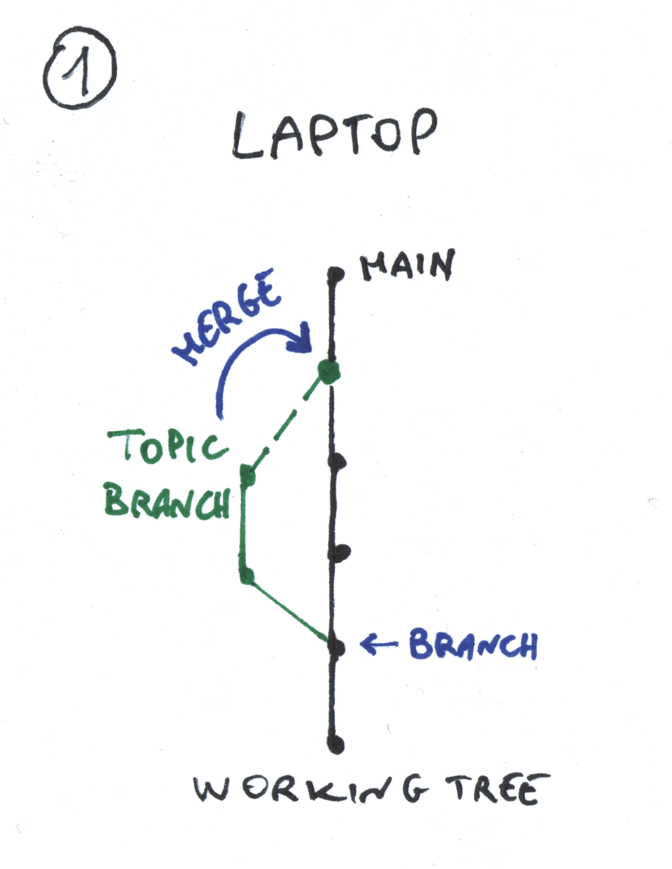 1
LAPTOP
MAIN
MERGE
TOPIC
BRANCH
← BRANCH
WORKING TREE